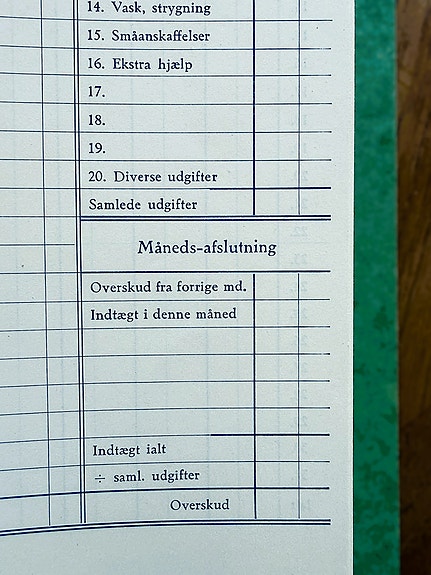 14. Vask, strygning
15. Småanskaffelser
16. Ekstra hjælp
17.
18.
19.
20. Diverse udgifter
Samlede udgifter
Måneds-afslutning
Overskud fra forrige md.
Indtægt i denne måned
Indtægt ialt
÷ saml. udgifter
Overskud